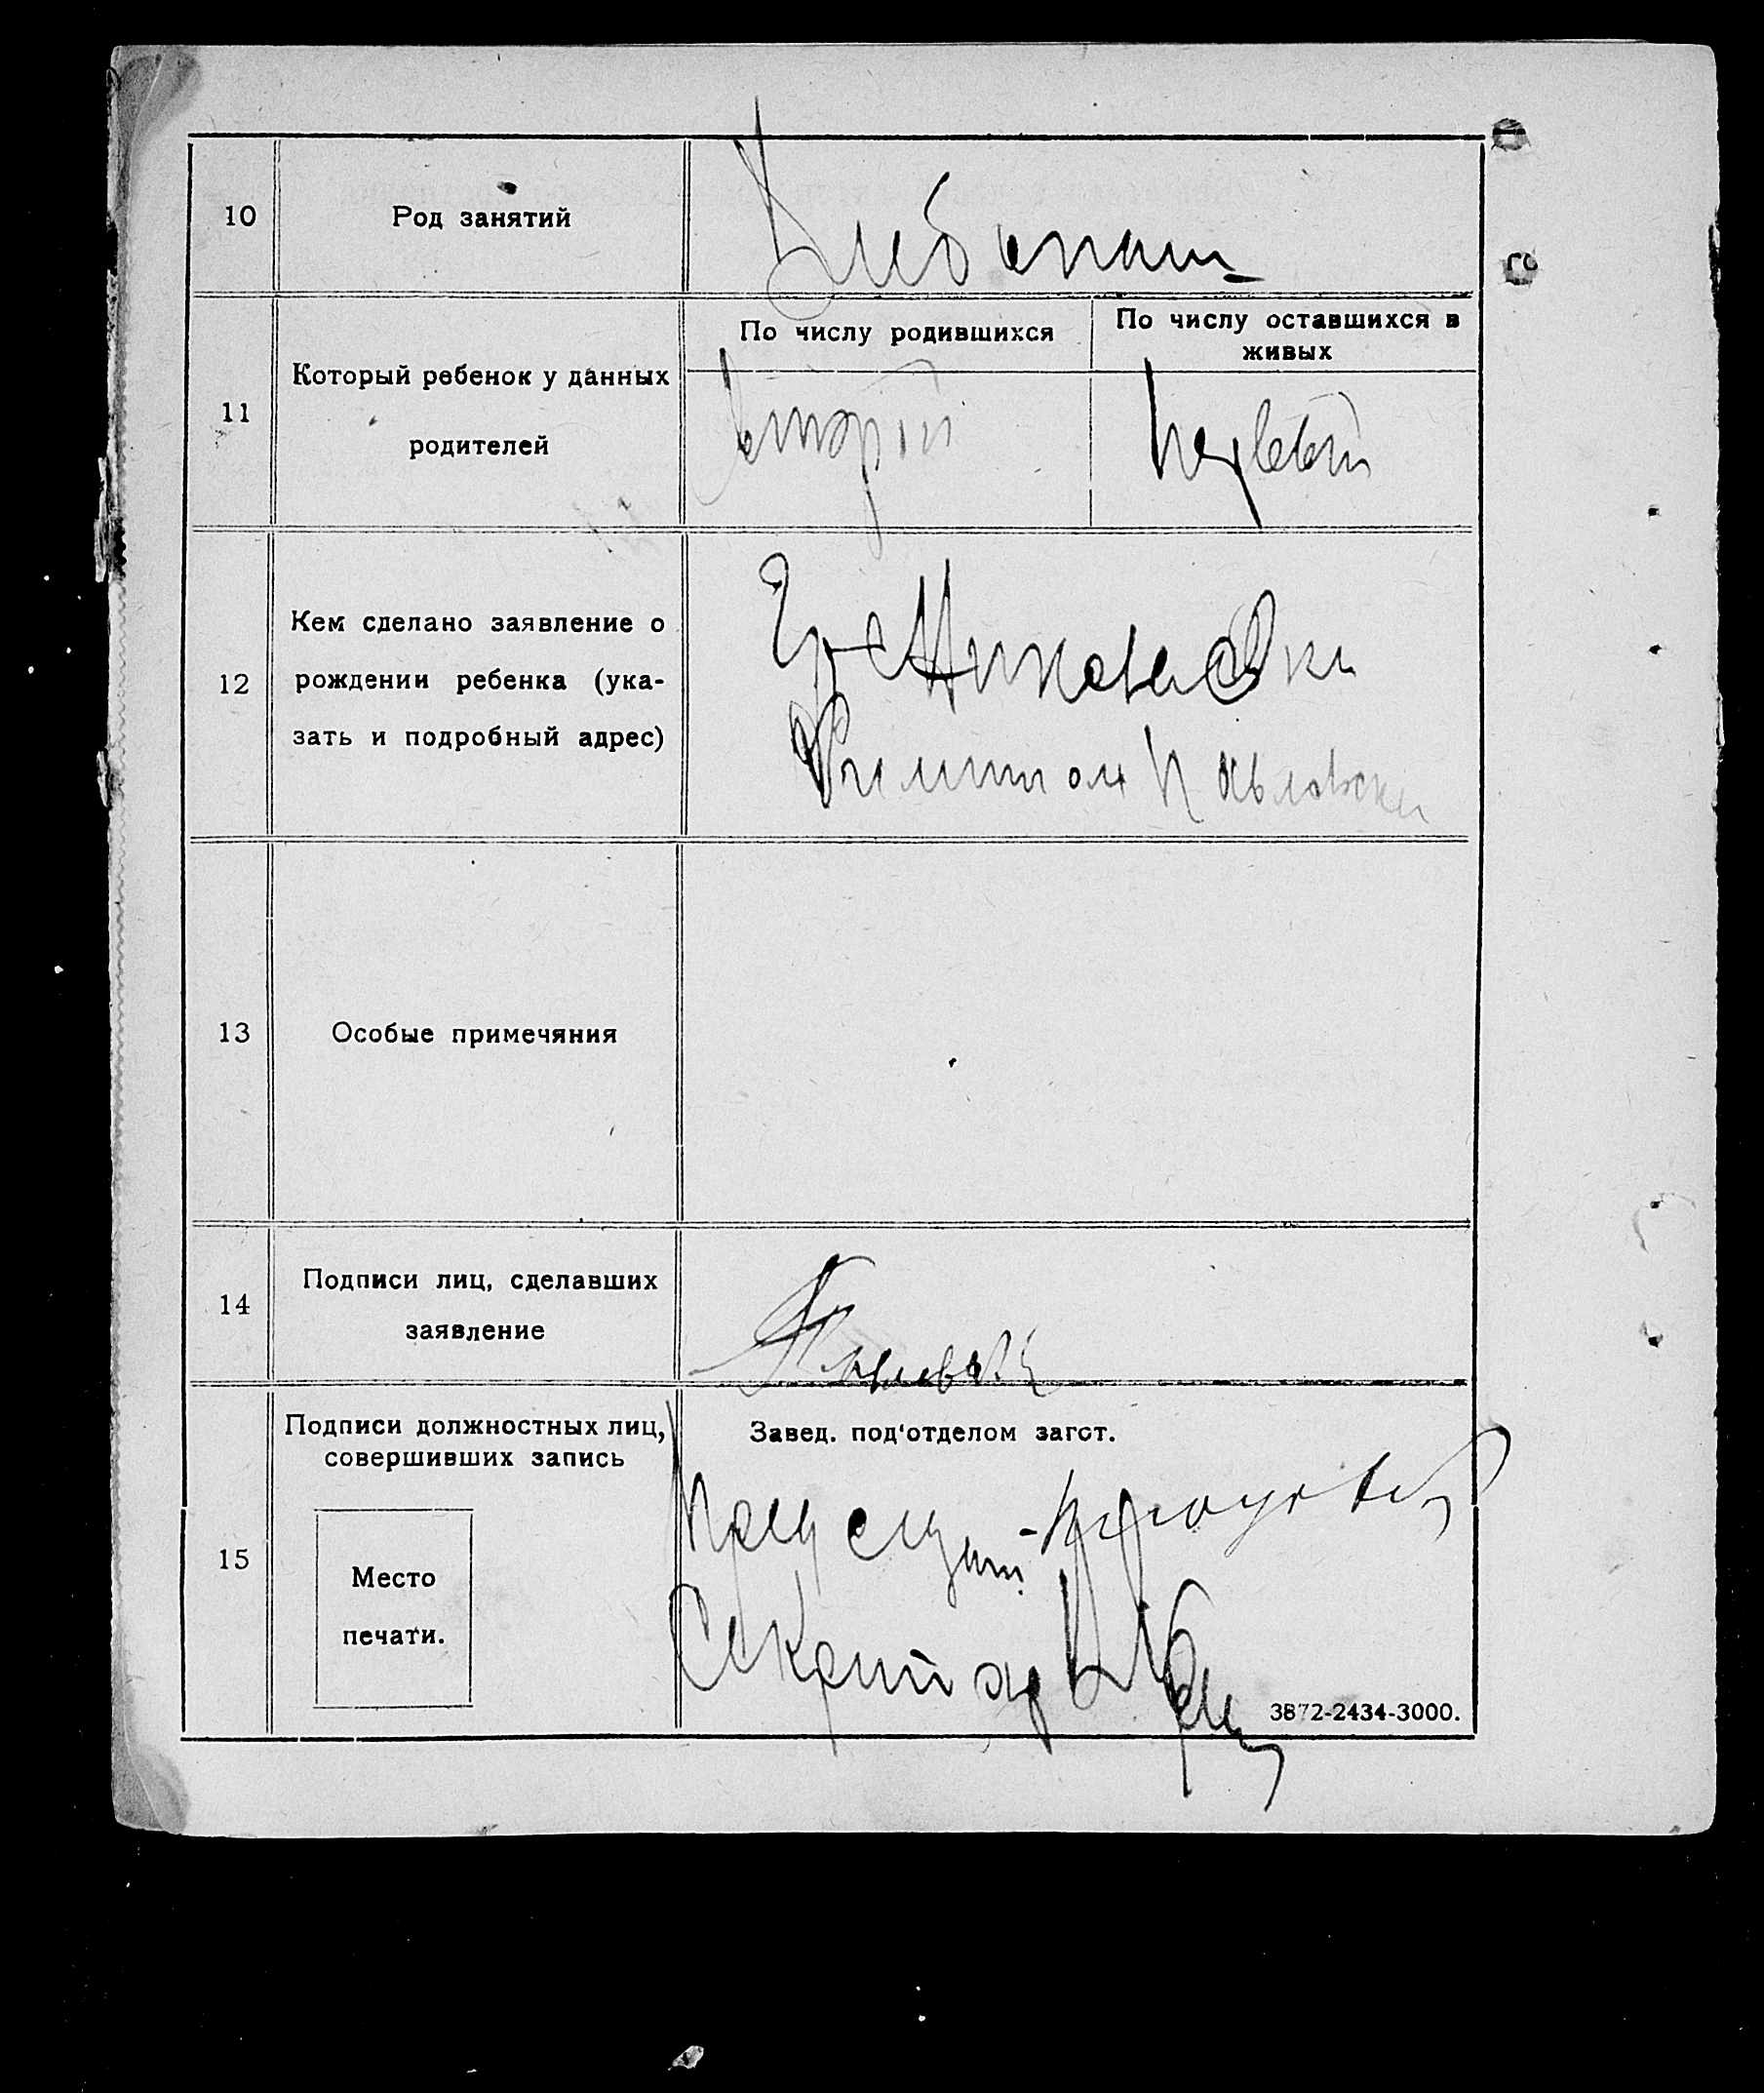 10 Род занятий Хлебопаш
По числу родившихся
По числу оставшихся в
живых
Который ребенок у данных
11
родителей
второй
первый
Кем сделано заявление о
12 рождении ребенка (ука-
зать и подробный адрес)
Филиппом Павловски
13 Особые примечяния
Подписи лиц, сделавших
14
заявление
Подписи должностных лиц,
совершивших запись
Завед. под'отделом загст.
15
Место
печати.
Секретарь
3872-2434-3000.